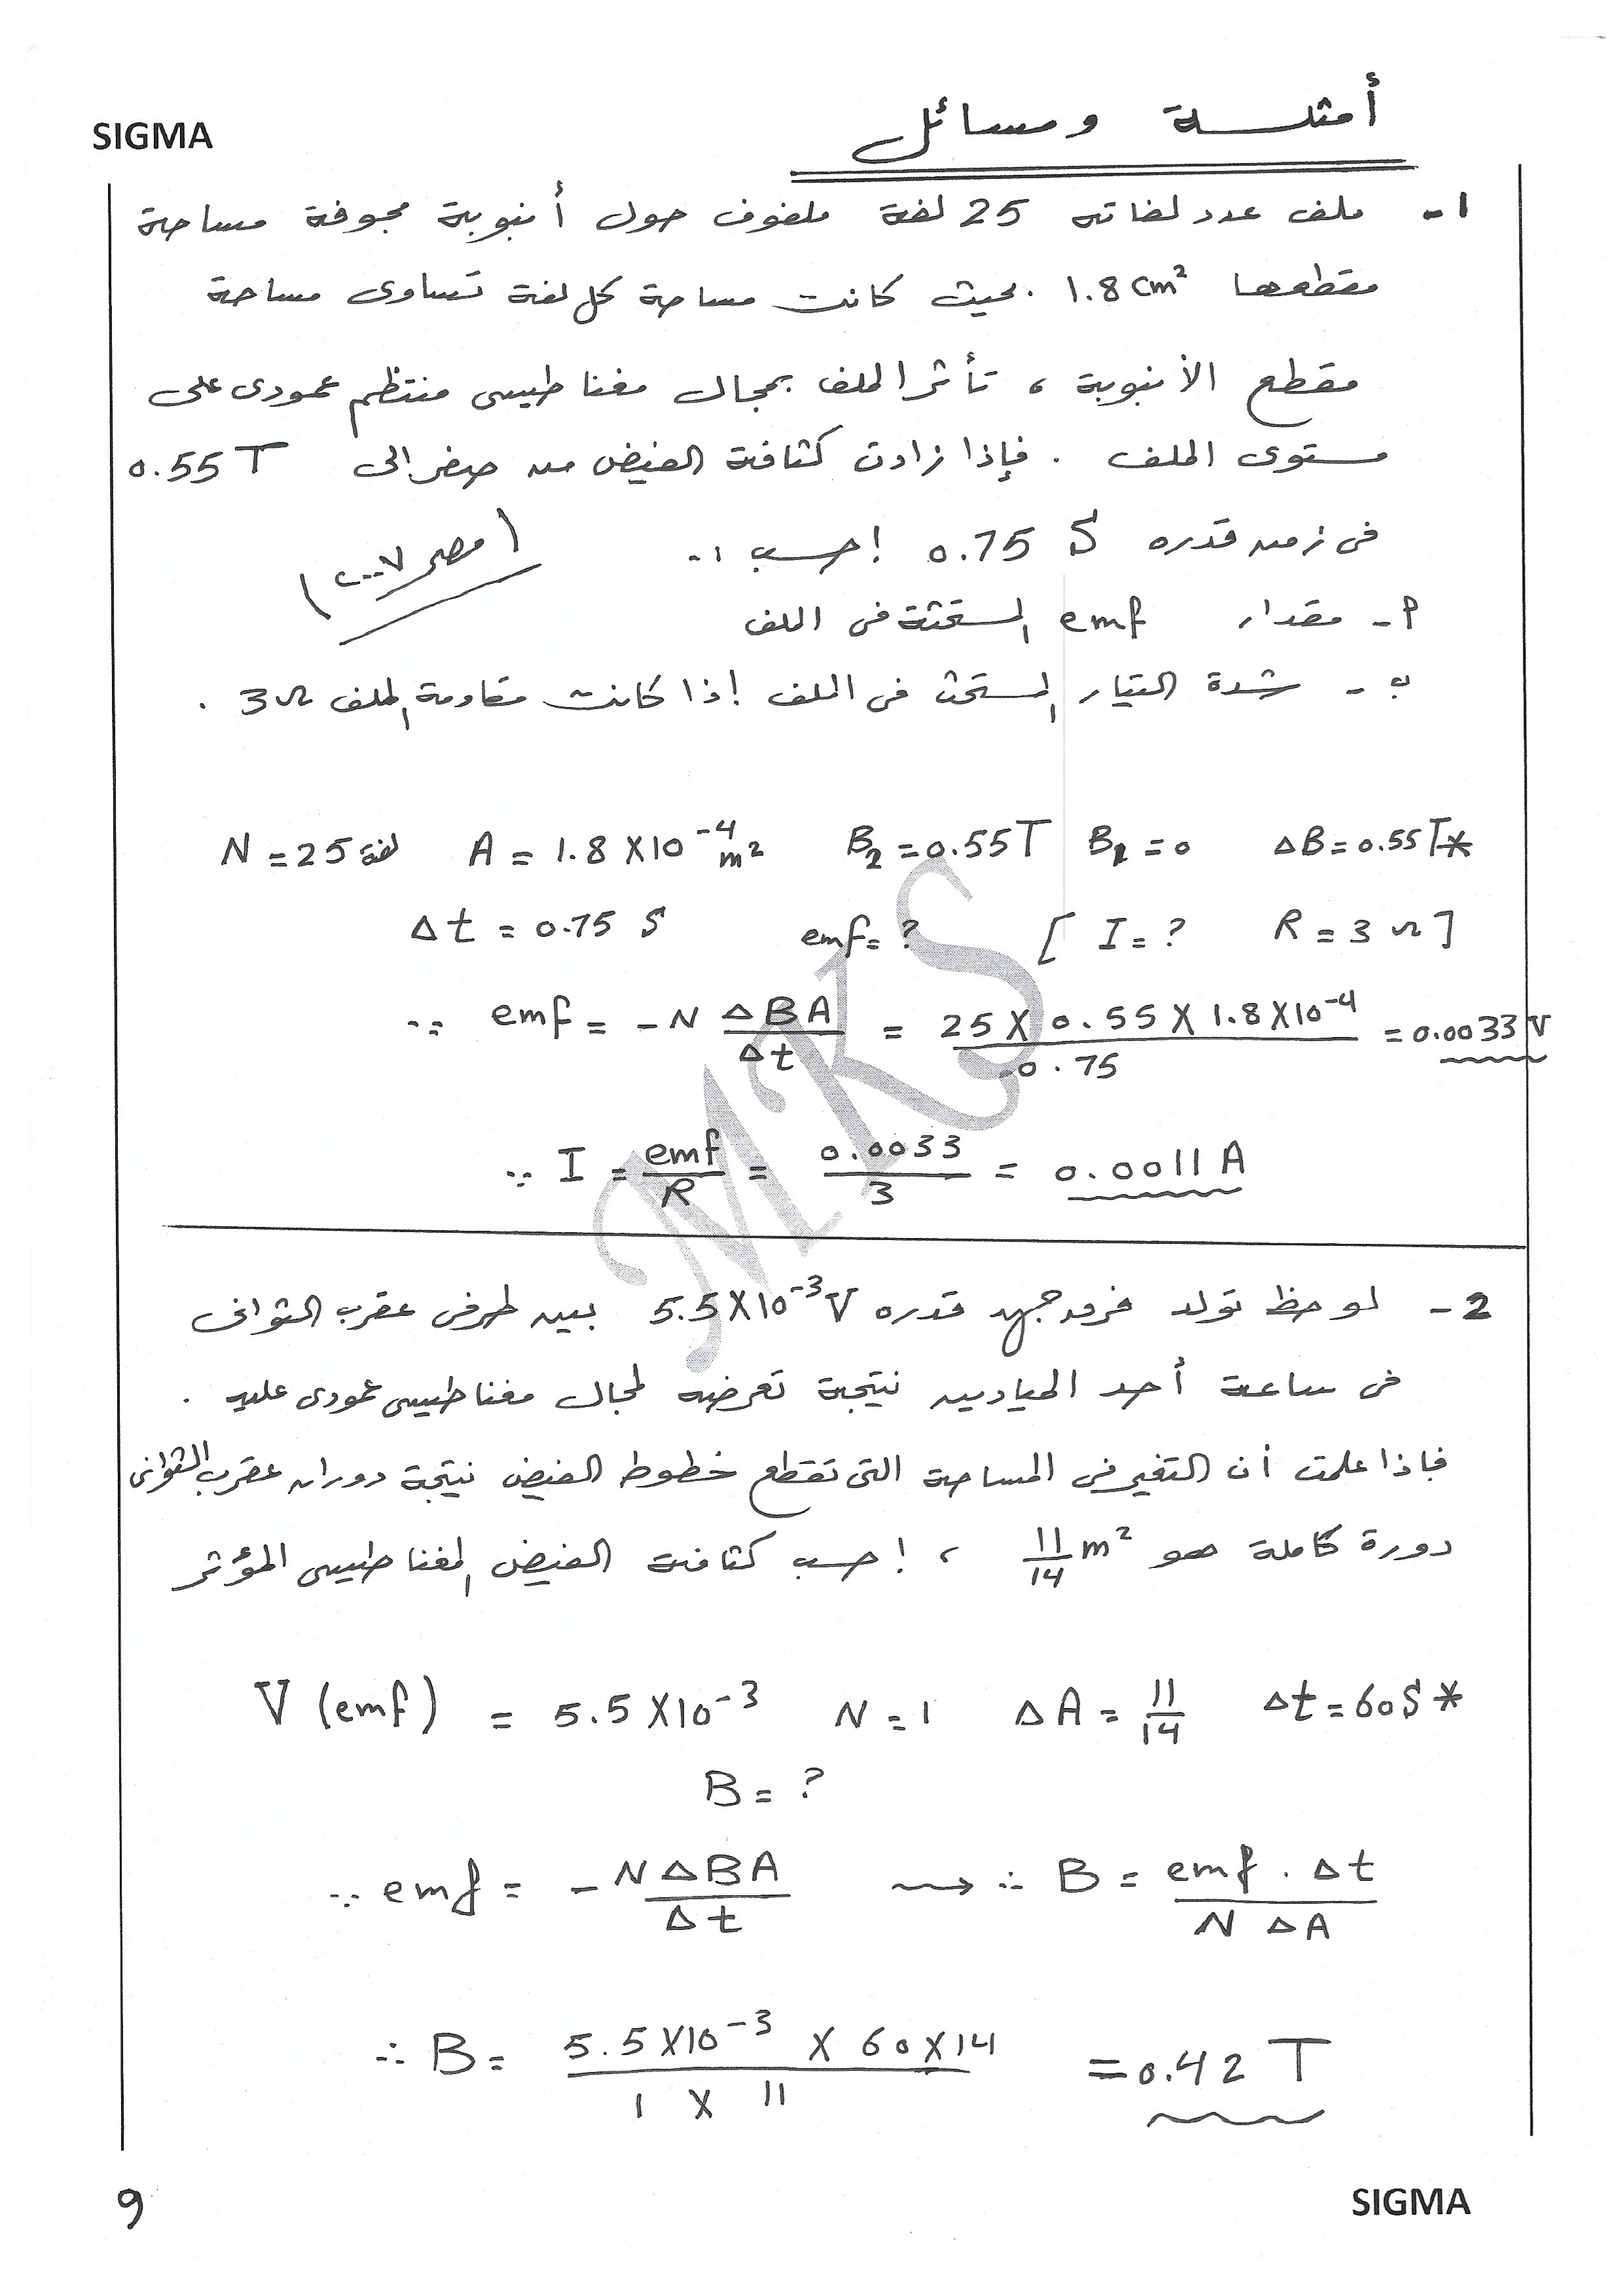 SIGMA
أمثلة ومسائل
1- ملف عدد لفاته 25 لفة ملفوف حول أنبوبة مجوفة مساحة
مقطعها 1.8 cm² . بحيث كانت مساحة كل لفة تساوى مساحة
مقطع الأنبوبة ، تأثر الملف بمجال مغناطيسى منتظم عمودى على
مستوى الملف . فإذا زادت كثافة الفيض من صفر إلى 0.55 T
فى زمن قدره 0.75 S إحسب :-
(مصر ٢٠٠٧)
٩- مقدار emf المستحثة فى الملف
ب- شدة التيار المستحث فى الملف إذا كانت مقاومة الملف 3Ω .
N = 25 لفة A = 1.8 X10⁻⁴ m² B₂ = 0.55T B₁ = 0 ΔB = 0.55T *
Δt = 0.75 S emf = ? [ I = ? R = 3 Ω ]
∵ emf = -N ΔBA / Δt = 25 X 0.55 X 1.8 X10⁻⁴ / 0.75 = 0.0033 V
∵ I = emf / R = 0.0033 / 3 = 0.0011 A
MKS
2- لوحظ تولد فرق جهد قدره 5.5X10⁻³ V بين طرفى عقرب الثوانى
فى ساعة أحد الميادين نتيجة تعرضه لمجال مغناطيسى عمودى عليه .
فإذا علمت أن التغير فى المساحة التى تقطع خطوط الفيض نتيجة دوران عقرب الثوانى
دورة كاملة هو 11/14 m² ، إحسب كثافة الفيض المغناطيسى المؤثر
V (emf) = 5.5 X10⁻³ N = 1 ΔA = 11/14 Δt = 60S *
B = ?
∵ emf = -NΔBA / Δt ⇝ ∴ B = emf . Δt / N ΔA
∴ B = 5.5X10⁻³ X 60 X 14 / 1 X 11 = 0.42 T
٩
SIGMA